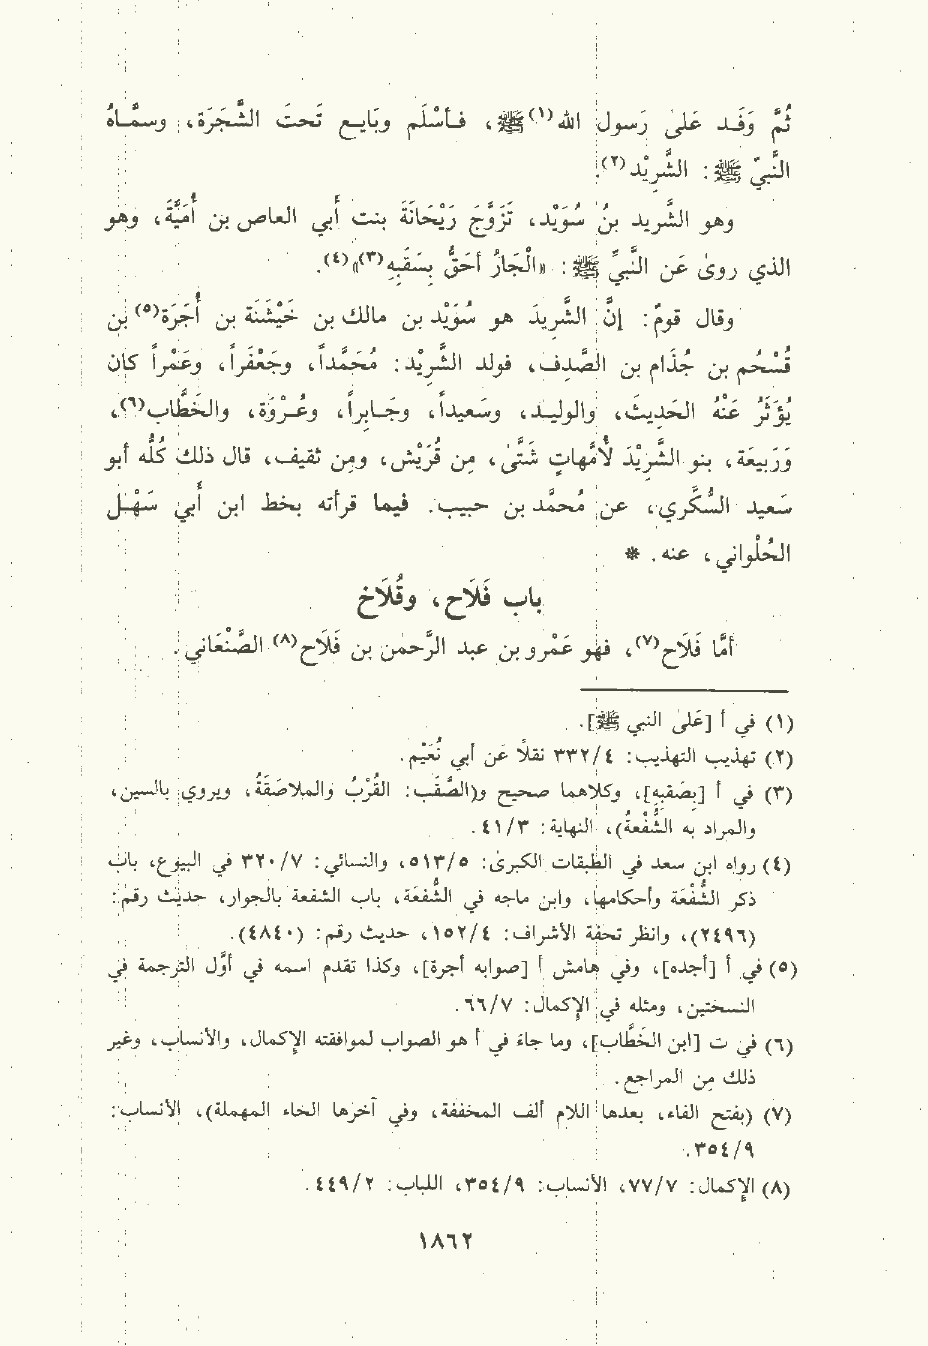 ثُمَّ وَفَـد عَلىٰ رَسول الله(١) ﷺ، فـأسْلَم وبَايـع تَحتَ الشَّجَرَة، وسمَّـاهُ
النَّبيّ ﷺ: الشَّرِيْد(٢).
وهو الشَّريد بنُ سُوَيْد، تَزَوَّجَ رَيْحَانَةَ بنت أبي العاص بن أُمَيَّة، وهو
الذي روىٰ عَن النَّبيِّ ﷺ: «الْجَارُ أحَقُّ بِسَقَبِهِ(٣)»(٤).
وقال قومٌ: إنَّ الشَّرِيدَ هو سُوَيْد بن مالك بن خَيْشَنَة بن أُجَرَة(٥) بن
قُسْحُم بن جُذَام بن الصَّدِف، فولد الشَّرِيْد: مُحَمَّداً، وجَعْفَراً، وعَمْراً كان
يُؤثَرُ عَنْهُ الحَدِيثَ، والوليـد، وسَعيداً، وجَـابراً، وعُـرْوَة، والخَطَّاب(٦)،
وَرَبيعَة، بنو الشَّرِيْدَ لأمَّهاتٍ شَتَّىٰ، مِن قُرَيْش، ومِن ثقيف، قال ذلك كُلَّه أبو
سَعيد السُّكَّري، عن مُحمَّد بن حبيب. فيما قرأته بخط ابن أبي سَهْـل
الحُلْواني، عنه. *
باب فَلَاح، وقُلَاخ
أمَّا فَلَاح(٧)، فهو عَمْرو بن عبد الرَّحمٰن بن فَلَاح(٨) الصَّنْعَاني.
(١) في أ [عَلىٰ النبي ﷺ].
(٢) تهذيب التهذيب: ٣٣٢/٤ نقلاً عَن أبي نُعَيْم.
(٣) في أ [بِصَقبِهِ]، وكلاهما صحيح و(الصَّقَب: القُرْبُ والملاصَقَةُ، ويروي بالسين،
والمراد به الشُّفْعةُ)، النهاية: ٤١/٣.
(٤) رواه ابن سعد في الطبقات الكبرىٰ: ٥١٣/٥، والنسائي: ٣٢٠/٧ في البيوع، باب
ذكر الشُّفْعَة وأحكامها، وابن ماجه في الشُّفعَة، باب الشفعة بالجوار، حديث رقم:
(٢٤٩٦)، وانظر تحفة الأشراف: ١٥٢/٤، حديث رقم: (٤٨٤٠).
(٥) في أ [أجده]، وفي هامش أ [صوابه أجرة]، وكذا تقدم اسمه في أوَّل الترجمة في
النسختين، ومثله في الإكمال: ٦٦/٧.
(٦) في ت [ابن الخَطَّاب]، وما جاءَ في أ هو الصواب لموافقته الإكمال، والأنساب، وغير
ذلك مِن المراجع.
(٧) (بفتح الفاء، بعدها اللام ألف المخففة، وفي آخرها الحاء المهملة)، الأنساب:
٣٥٤/٩.
(٨) الإكمال: ٧٧/٧، الأنساب: ٣٥٤/٩، اللباب: ٤٤٩/٢.
١٨٦٢